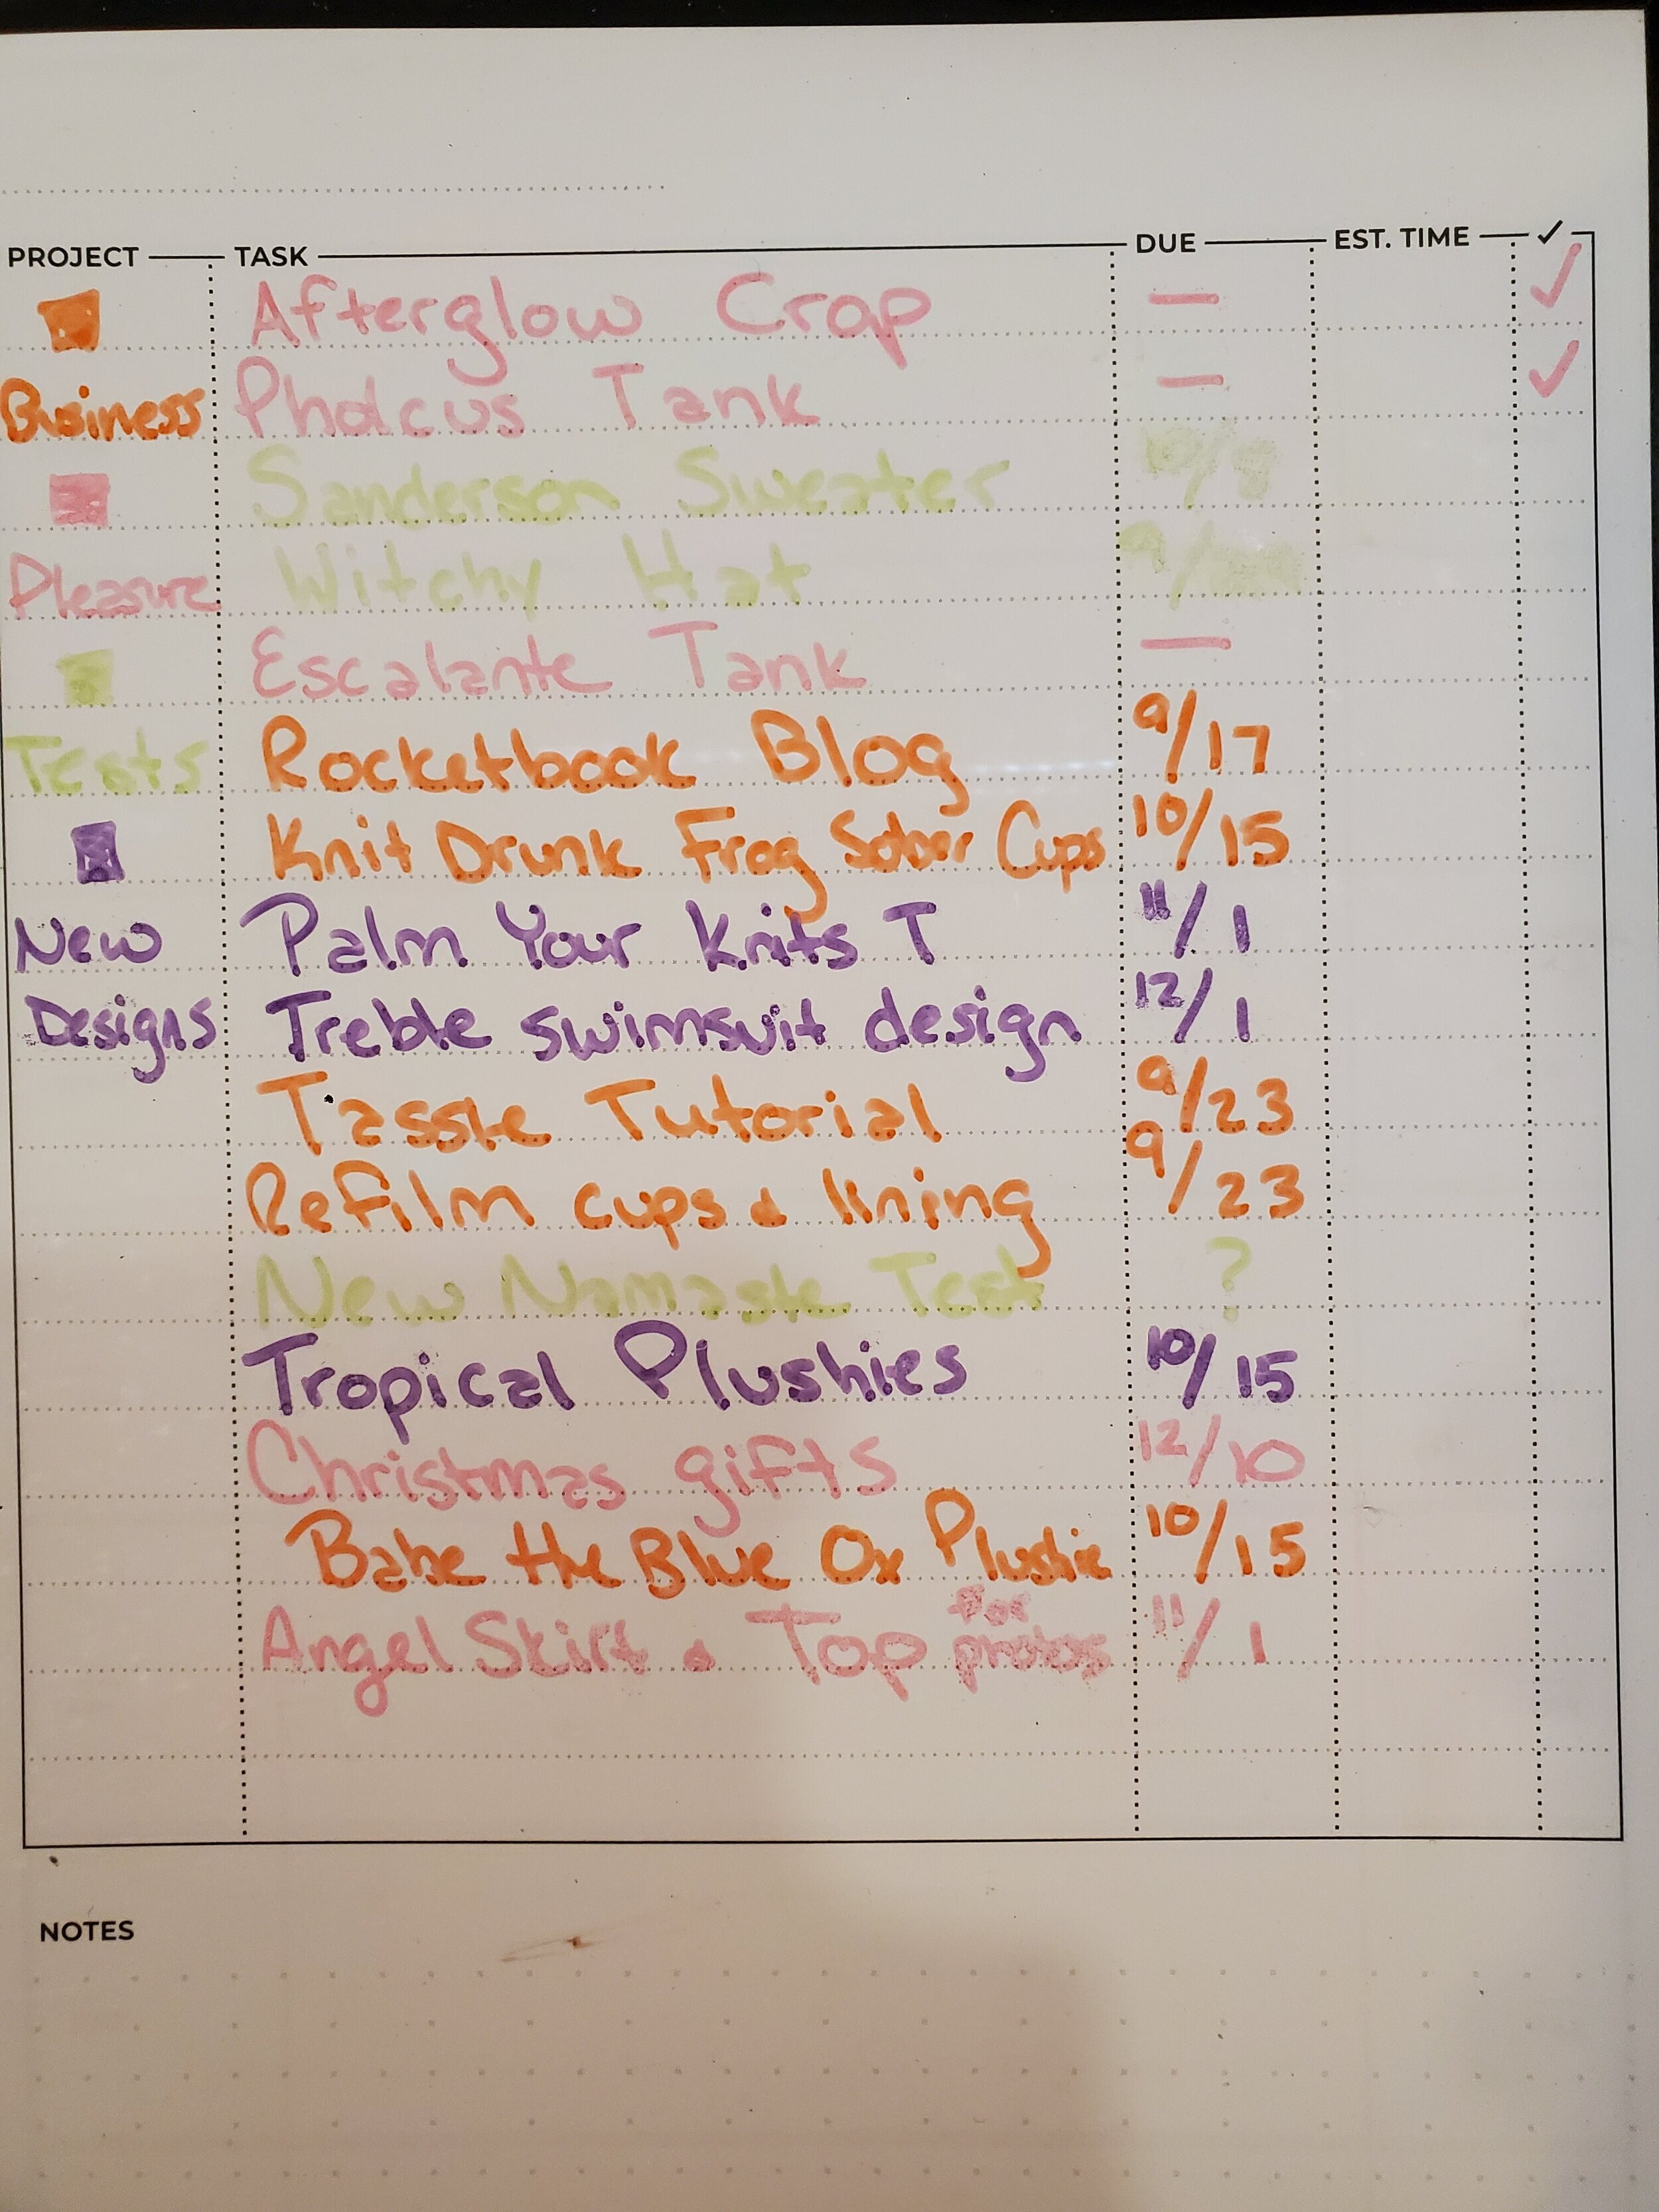 PROJECT TASK DUE EST. TIME ✓
Afterglow Crop — ✓
Business Pholcus Tank — ✓
Sanderson Sweater 10/8
Pleasure Witchy Hat 9/
Escalante Tank —
Tests Rocketbook Blog 9/17
Knit Drunk Frog Sober Cups 10/15
New Palm Your Knits T 11/1
Designs Treble swimsuit design 12/1
Tassle Tutorial 9/23
Refilm cups & lining 9/23
New Namaste Test ?
Tropical Plushies 10/15
Christmas gifts 12/10
Babe the Blue Ox Plushie 10/15
Angel Skirt & Top for photos 11/1
NOTES